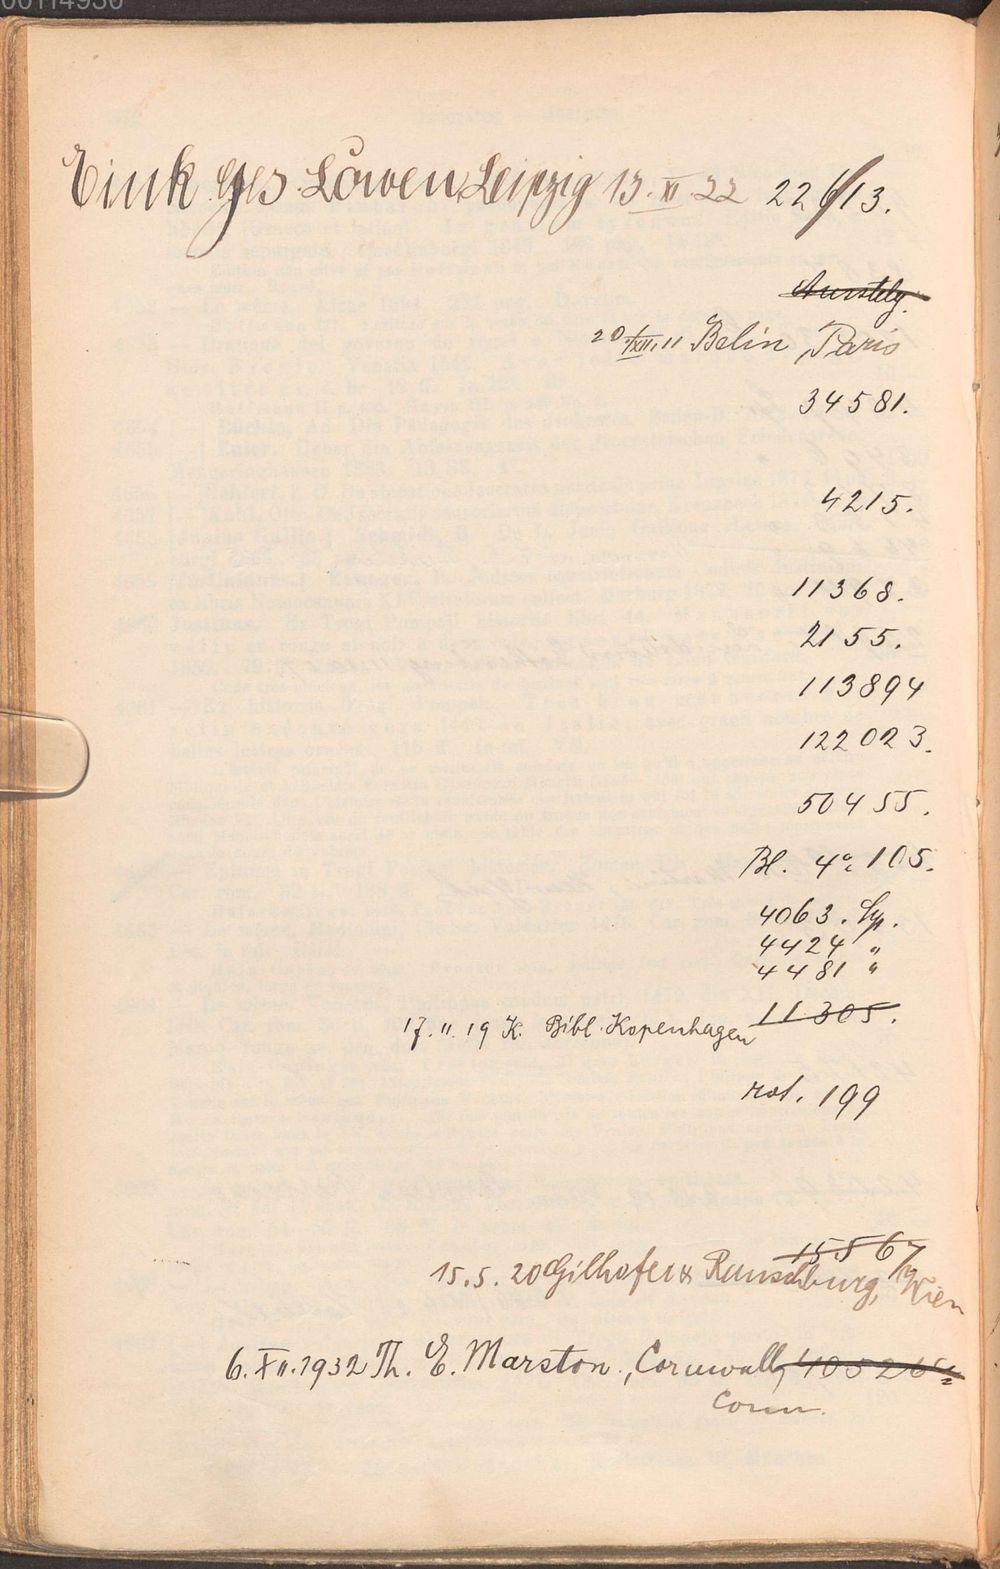 00114936
Eink Ges. Löwen, Leipzig 13. XI 22 22613.
Ausstelg.
20/XII.11 Belin, Paris
34581.
4215.
11368.
2155.
113894
122023.
50455.
Bl. 4°: 105.
4063.
4424 "
4481 "
11305.
17.11.19 K. Bibl. Kopenhagen
rot. 199
15567
15.5.20 Gilhofer & Ranschburg, Wien
6. XII. 1932 Th. E. Marston, Cornwall,
Conn.